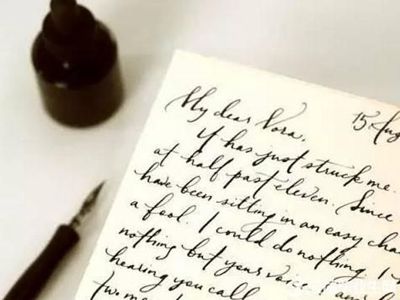 15 Aug
My dear Nora,
It has just struck me.
at half past eleven. Since
have been sitting in an easy chai
a fool. I could do nothing. I
nothing but your voice
hearing you call